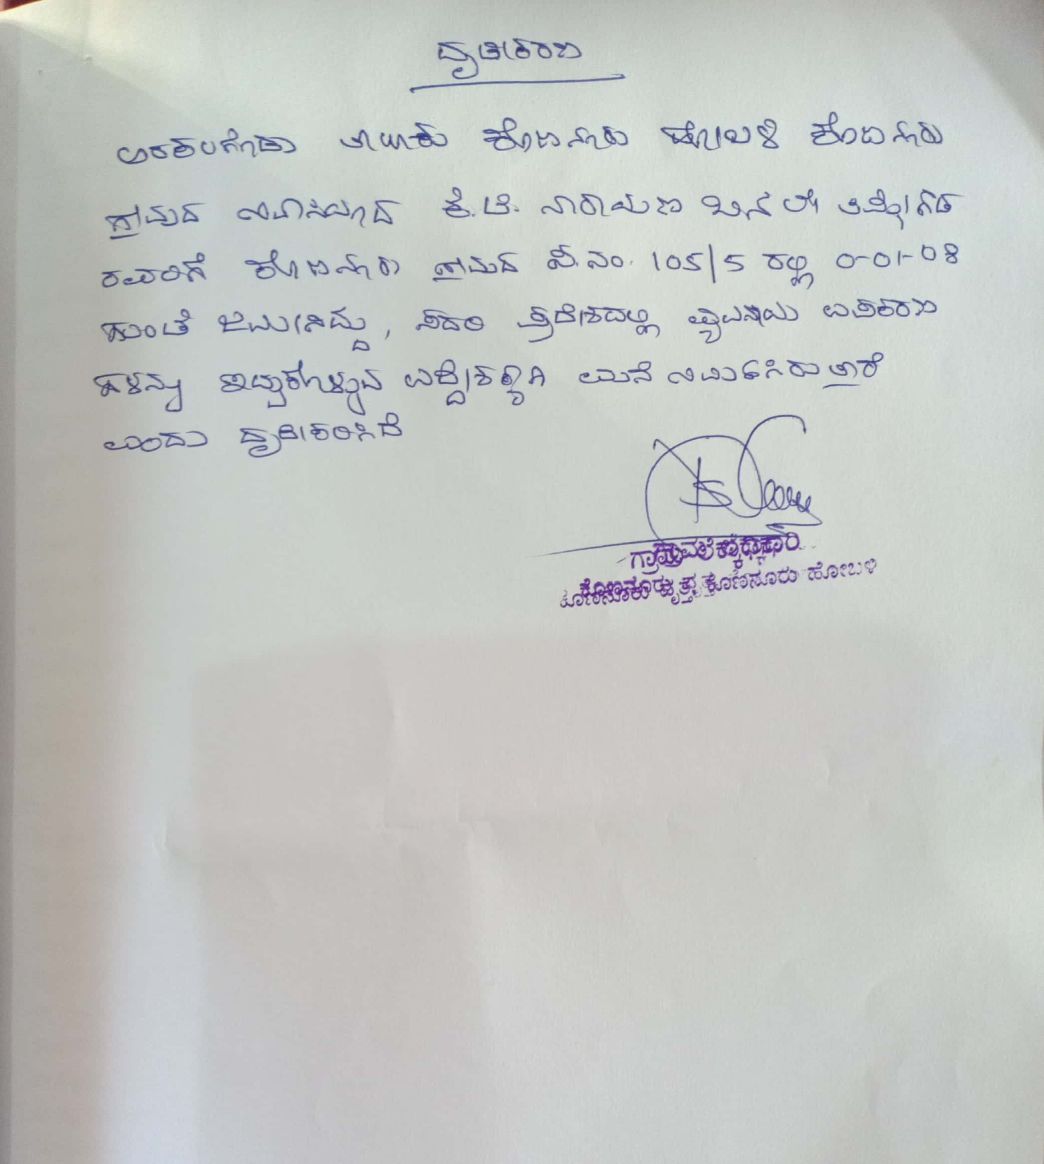 ದೃಢೀಕರಣ
ಅರಕಲಗೂಡು ತಾಲೂಕು ಕೊಣನೂರು ಹೋಬಳಿ ಕೊಣನೂರು
ಗ್ರಾಮದ ನಿವಾಸಿಯಾದ ಕೆ.ಟಿ. ನಾರಾಯಣ ಬಿನ್ ಲೇ
ರವರಿಗೆ ಕೊಣನೂರು ಗ್ರಾಮದ ಸ.ನಂ. 105/5 ರಲ್ಲಿ 0-01-08
ಗುಂಟೆ ಜಮೀನಿದ್ದು, ಸದರಿ ಪ್ರದೇಶದಲ್ಲಿ ವ್ಯವಸಾಯ
ಗಳನ್ನು ಇಟ್ಟುಕೊಳ್ಳುವ ಉದ್ದೇಶಕ್ಕಾಗಿ ಮನೆ ನಿರ್ಮಿಸಿರುತ್ತಾರೆ
ಎಂದು ದೃಢೀಕರಿಸಿದೆ
ಕೊಣನೂರು ವೃತ್ತ, ಕೊಣನೂರು ಹೋಬಳಿ